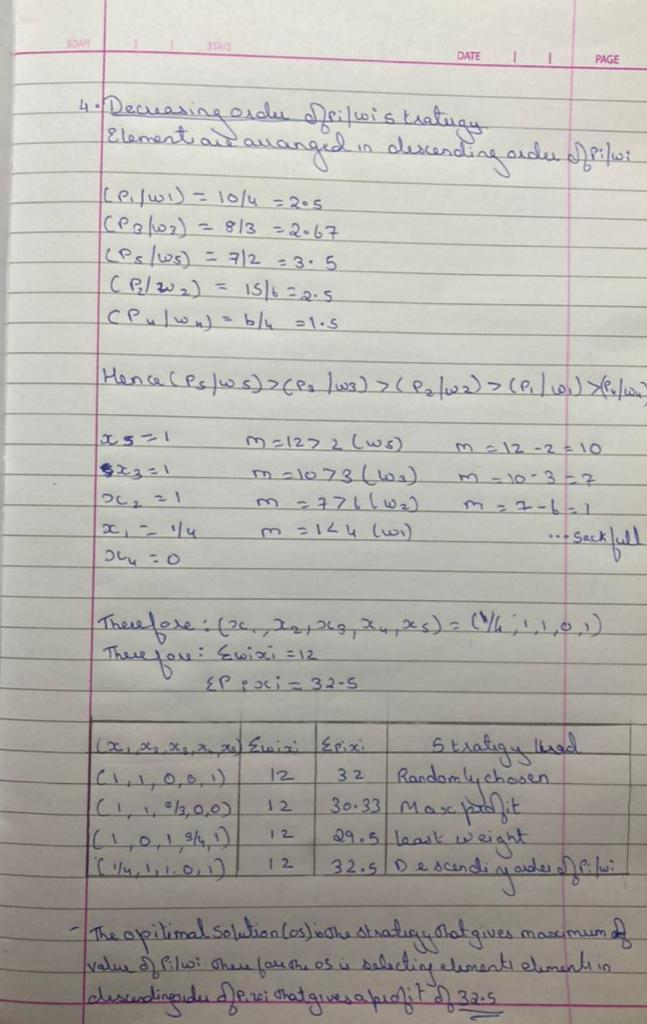 DATE | | PAGE
4. Decreasing order of Pi/wi strategy
Element are arranged in descending order of Pi/wi
(P₁/w₁) = 10/4 = 2.5
(P3/w3) = 8/3 = 2.67
(P5/w5) = 7/2 = 3.5
(P2/w2) = 15/6 = 2.5
(P4/w4) = 6/4 = 1.5
Hence (P5/w5) > (P3/w3) > (P2/w2) > (P1/w1) > (P4/w4)
x5 = 1 m = 12 > 2 (w5) m = 12 - 2 = 10
x3 = 1 m = 10 > 3 (w3) m = 10 - 3 = 7
x2 = 1 m = 7 > 6 (w2) m = 7 - 6 = 1
x1 = 1/4 m = 1 < 4 (w1) ... Sack full
x4 = 0
Therefore : (x1, x2, x3, x4, x5) = (1/4, 1, 1, 0, 1)
Therefore : Σwixi = 12
ΣPixi = 32.5
(x1, x2, x3, x4, x5) Σwixi Σpixi Strategy Used
(1, 1, 0, 0, 1) 12 32 Randomly chosen
(1, 1, 2/3, 0, 0) 12 30.33 Max profit
(1, 0, 1, 3/4, 1) 12 29.5 least weight
(1/4, 1, 1, 0, 1) 12 32.5 Descending order of Pi/wi
- The opitimal Solution (os) is the strategy that gives maximum of
value of Pi/wi. Therefore the os is selecting elements elements in
descending order of Pi wi that gives a profit of 32.5